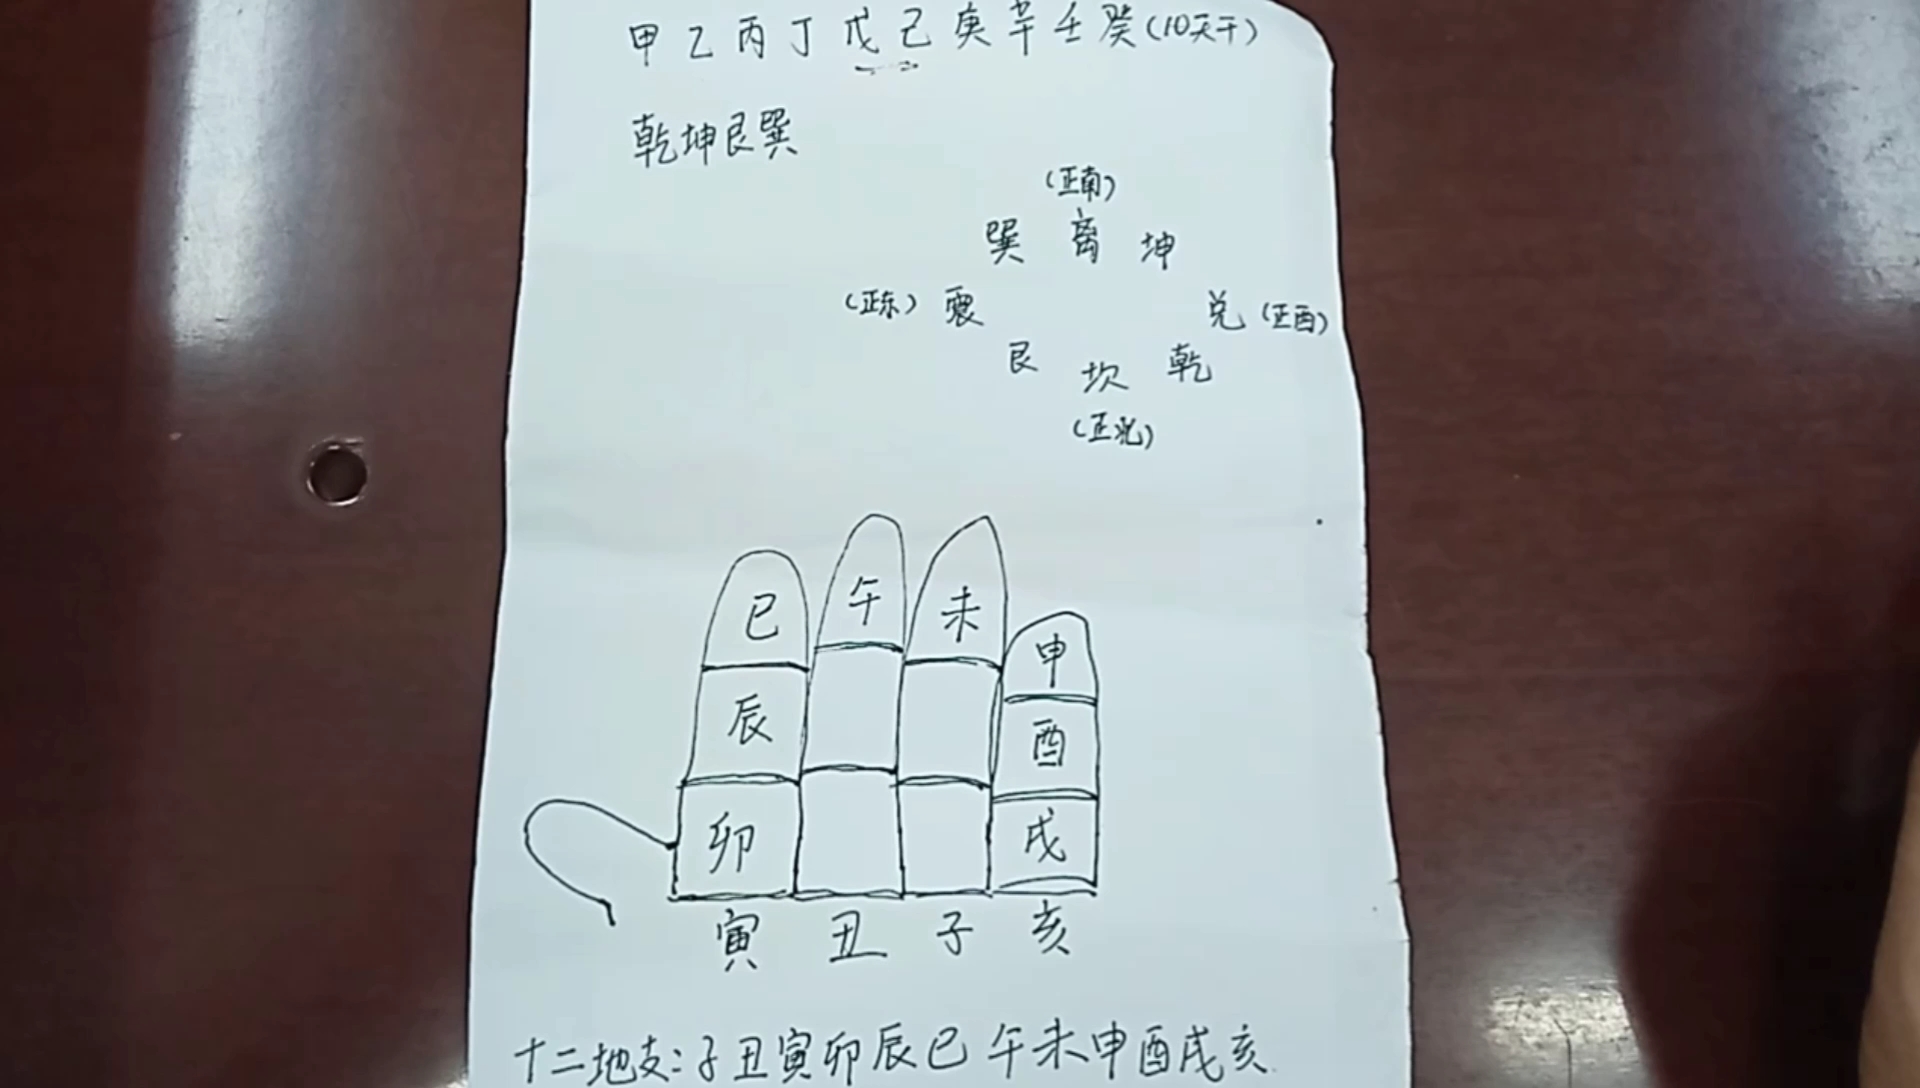 甲乙丙丁戊己庚辛壬癸(10天干)
乾坤艮巽
(正南)
巽 离 坤
(正东) 震 兑 (正酉)
艮 坎 乾
(正北)
巳 午 未 申
辰 酉
卯 戌
寅 丑 子 亥
十二地支:子丑寅卯辰巳午未申酉戌亥